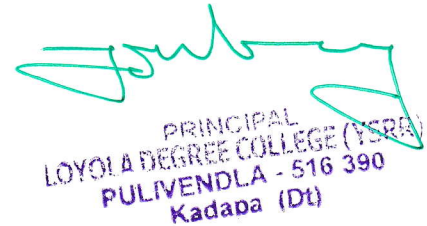 PRINCIPAL
LOYOLA DEGREE COLLEGE (YSRR)
PULIVENDLA - 516 390
Kadapa (Dt)